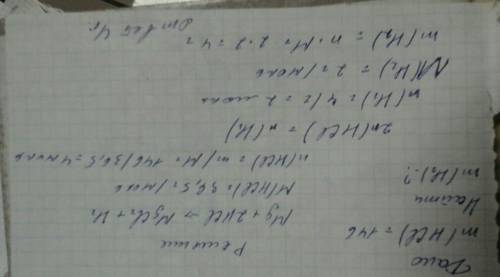 Дано
m(HCl) = 146
Найти
m(H₂)-?
Решение
Mg + 2HCl → MgCl₂ + H₂
M(HCl) = 36,5 г/моль
n(HCl) = m/M = 146/36,5 = 4 моль
2n(HCl) = n(H₂)
n(H₂) = 4/2 = 2 моль
M(H₂) = 2 г/моль
m(H₂) = n·M = 2·2 = 4 г
Ответ 4г